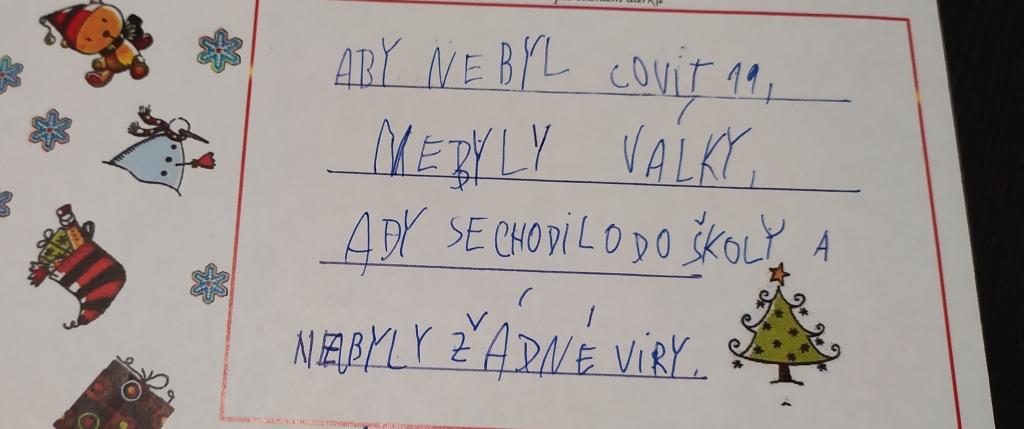 ABY NEBYL COVIT 19,
NEBYLY VÁLKY,
ABY SE CHODILO DO ŠKOLY A
NEBYLY ŽÁDNÉ VIRY.